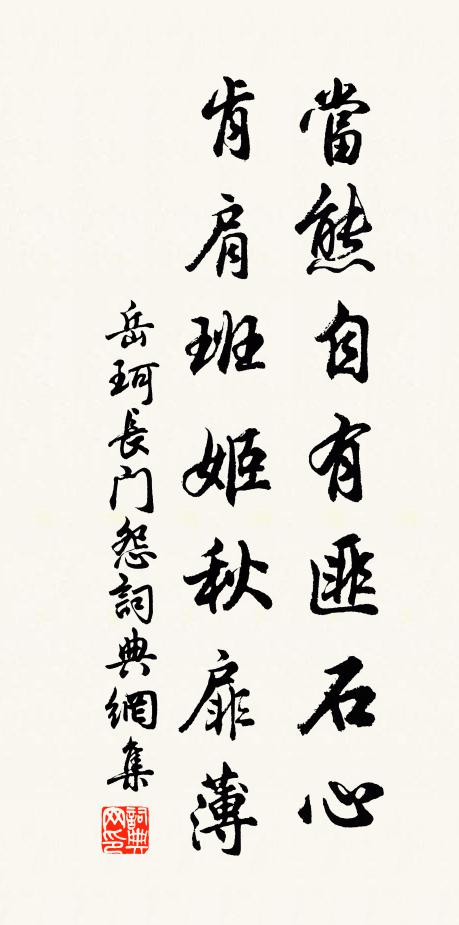 當熊自有匪石心
肯肩班姬秋扉薄
岳珂長門怨詞典網集
詞典网印